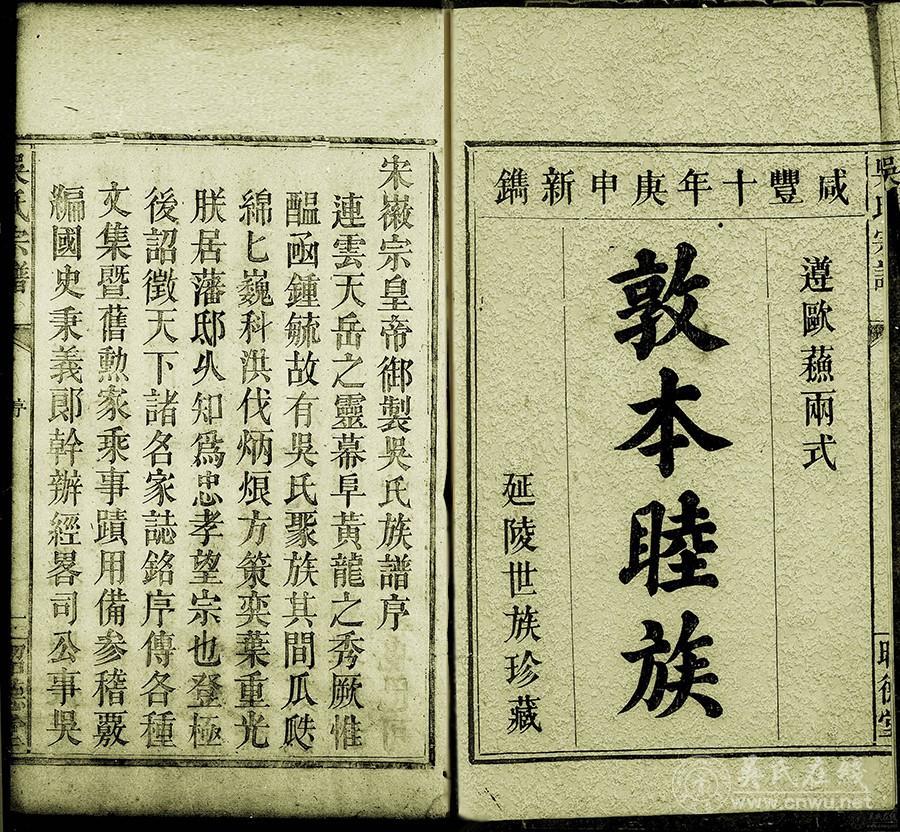 咸豐十年庚申新鐫
遵歐蘓兩式
敦本睦族
延陵世族珍藏
吳氏宗譜
宋徽宗皇帝御製吳氏族譜序
連雲天岳之靈幕阜黃龍之秀厥惟
醞凾鍾毓故有吳氏聚族其間瓜瓞
綿匕巍科洪伐炳烺方策奕葉重光
朕居藩邸夙知爲忠孝望宗也登極
後詔徵天下諸名家誌銘序傳各種
文集暨舊勲家乘事蹟用備参稽覈
編國史秉義郎幹辦經畧司公事吳
吳氏宗譜
序
吳氏在线
www.cnwu.net